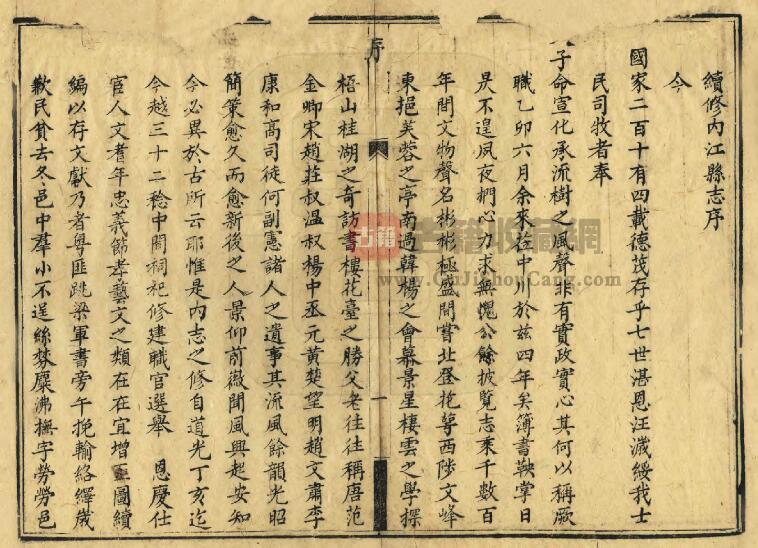 續修內江縣志序
今
國家二百十有四載德茂存乎七世湛恩汪濊綏我士
民司牧者奉
天子命宣化承流樹之風聲非有實政實心其何以稱厥
職乙卯六月余來莅中川於茲四年矣簿書鞅掌日
昃不遑夙夜捫心力求無愧公餘披覽志乘千數百
年間文物聲名彬彬極盛間嘗北登抱 西陟文峰
東挹芙蓉之亭南過韓楊之會慕景星棲雲之學探
序
一
梧山桂湖之奇訪書樓花臺之勝父老往往稱唐范
金卿宋趙莊叔溫叔楊中丞元黃楚望明趙文肅李
康和高司徒何副憲諸人之遺事其流風餘韻光昭
簡策愈久而愈新後之人景仰前徽聞風興起安知
今必異於古所云耶惟是內志之修自道光丁亥迄
今越三十二稔中間祠祀修建職官選舉 恩慶仕
官人文耆年忠義節孝藝文之類在在宜增亟圖續
編以存文獻乃者粵匪跳梁軍書旁午挽輸絡繹歲
歉民貧去冬邑中羣小不逞絲棼麋沸撫字勞勞邑
古籍
古籍收藏網
www.GuJiShouCang.com